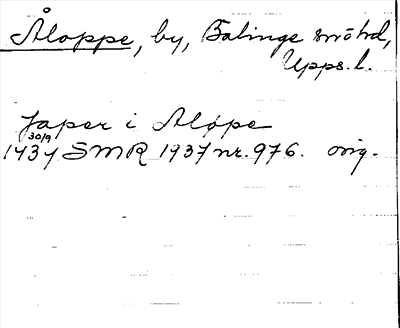 Åloppe, by, Balinge snöhd,
Upps. l.
Japer i Aløpe
30/9
1434 SMR 1937 nr. 976. orig.